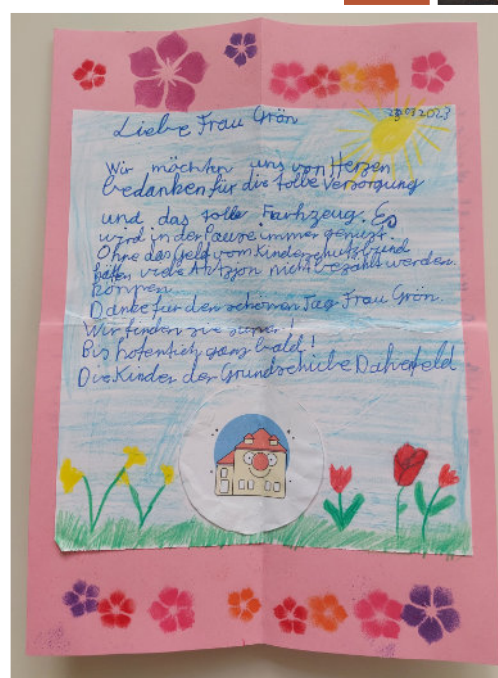 23.03.2023
Liebe Frau Grön
Wir möchten uns von Herzen
bedanken für die tolle Versorgung
und das tolle Farhzeug. Es
wird in der Pause immer genutzt.
Ohne das Geld vom Kinderschutzbund
hätten viele nicht bezahlt werden.
können
Danke für den schönen Tag Frau Grön.
Wir finden sie super!
Bis hofentlich ganz bald!
Die Kinder der Grundschule Dahefeld